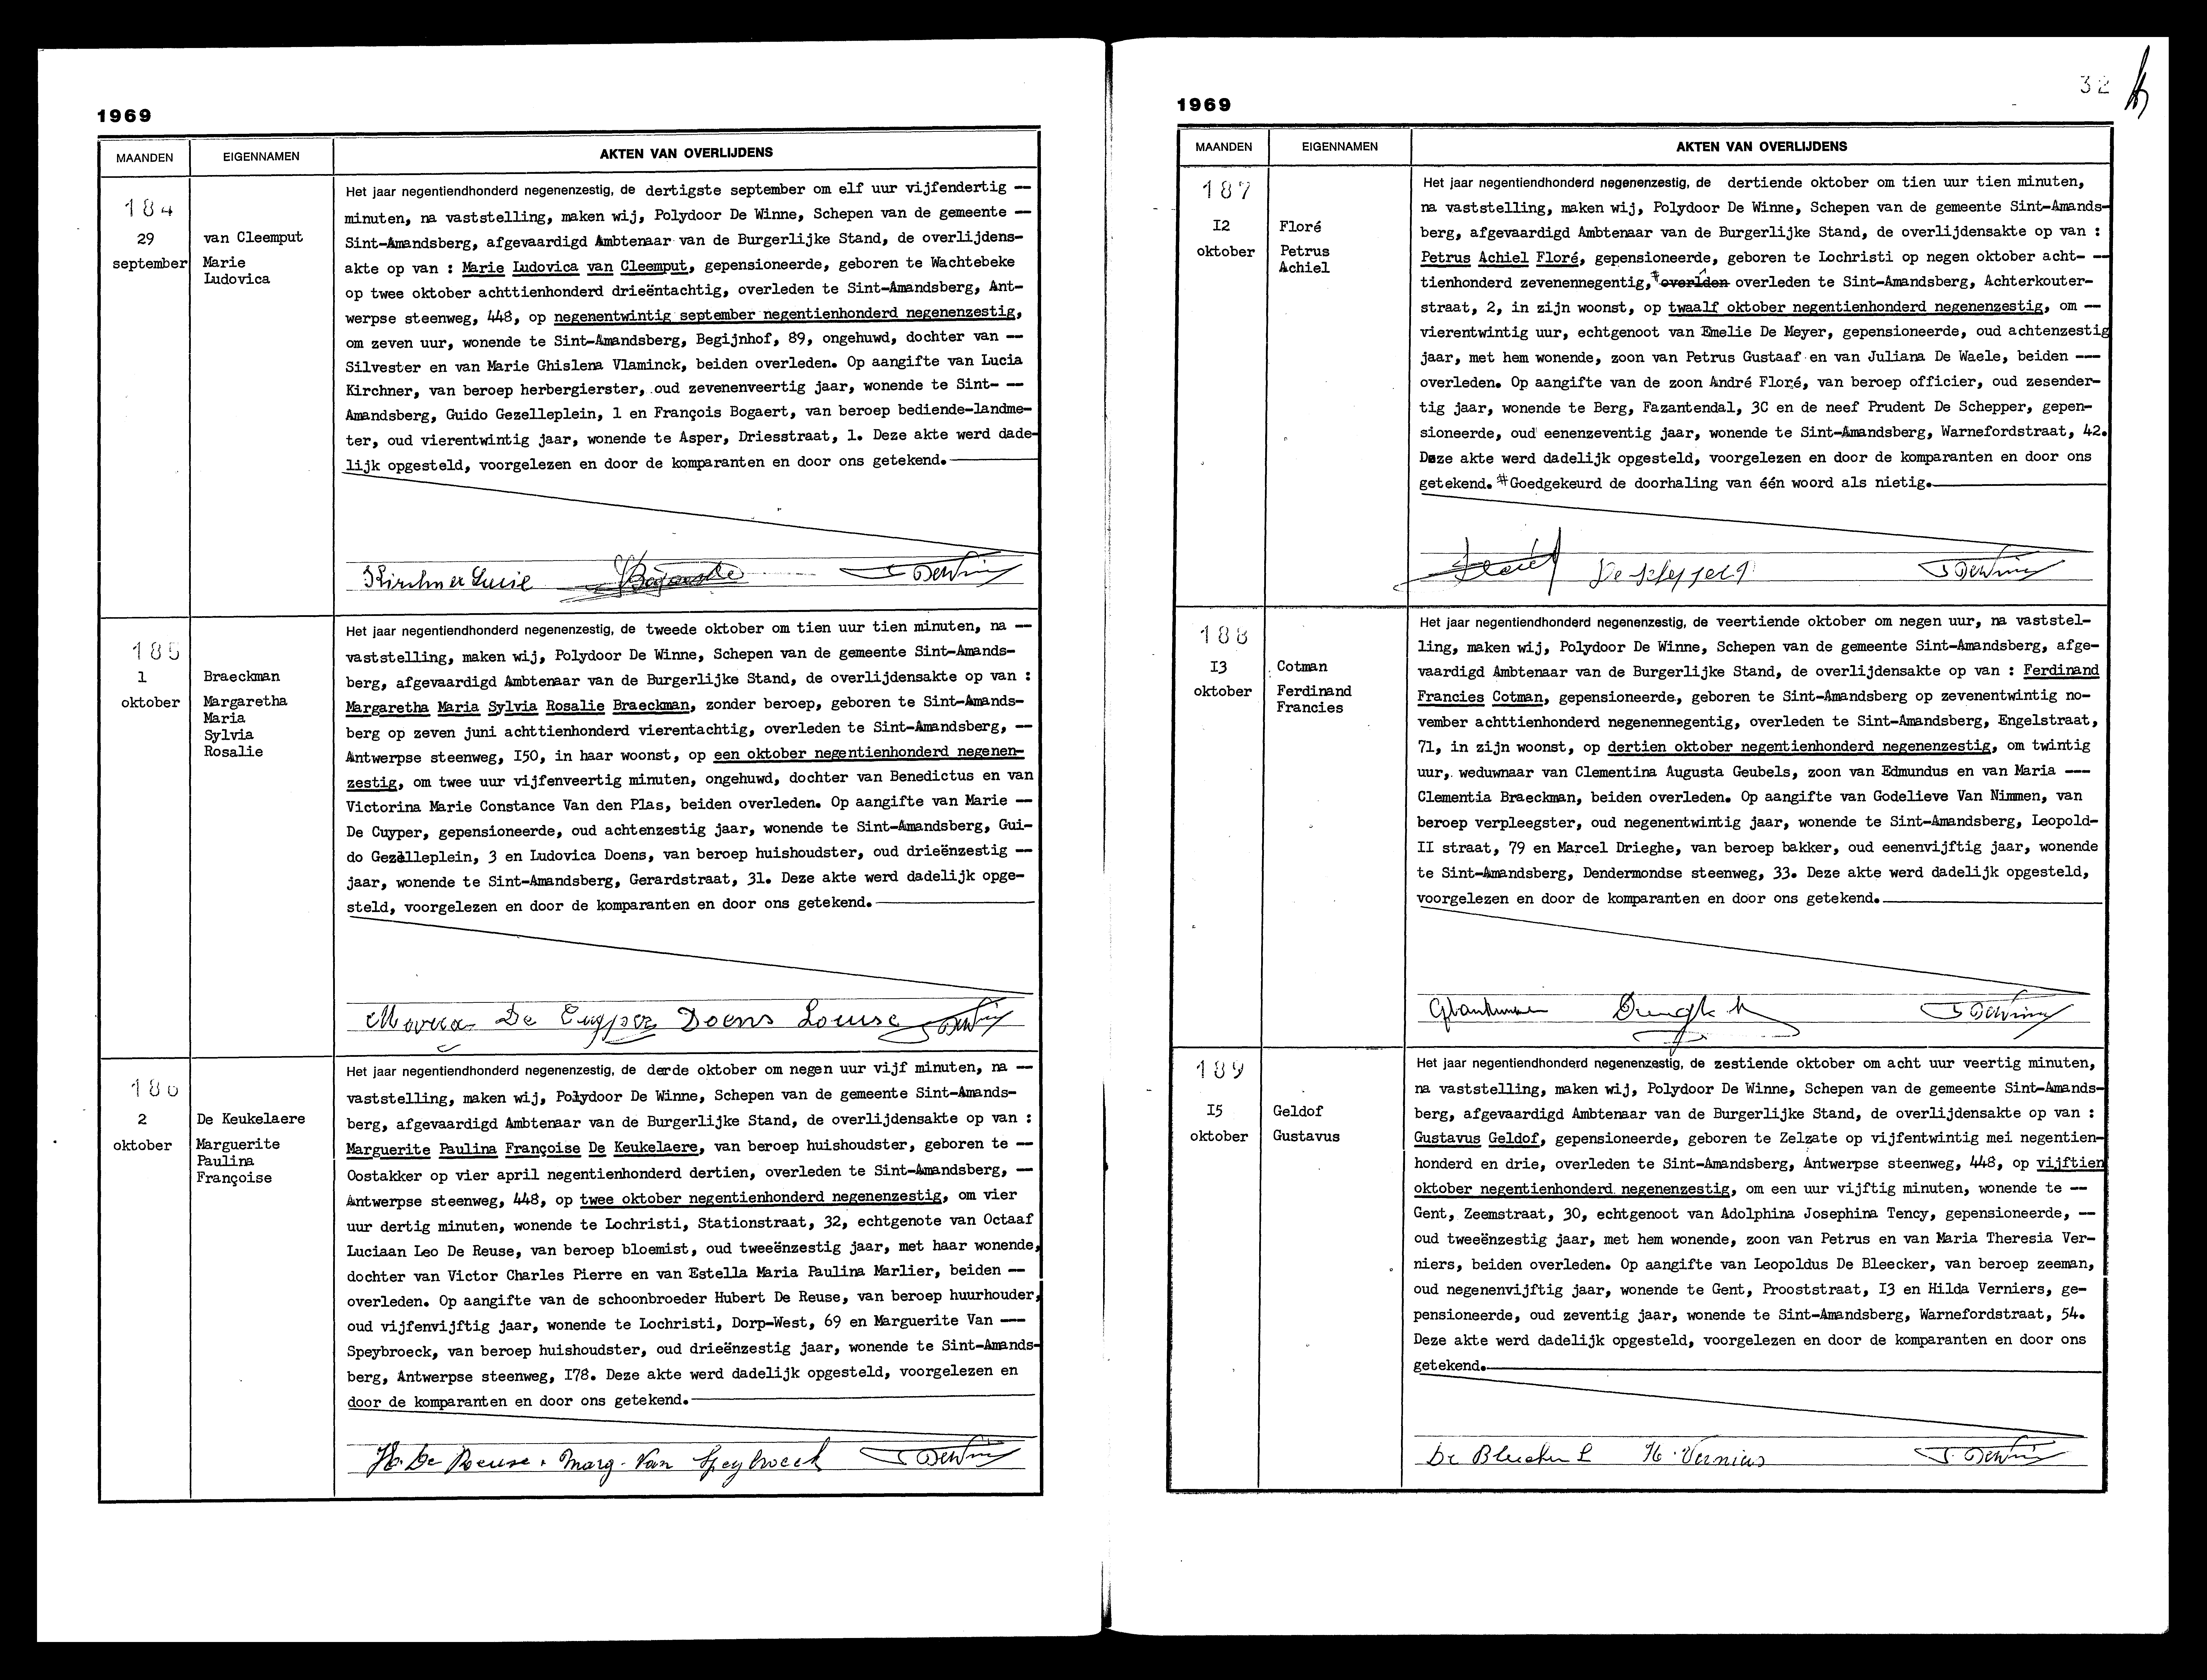 1969
MAANDEN
EIGENNAMEN
AKTEN VAN OVERLIJDENS
184
29
september
van Cleemput
Marie
Ludovica
Het jaar negentiendhonderd negenenzestig, de dertigste september om elf uur vijfendertig --
minuten, na vaststelling, maken wij, Polydoor De Winne, Schepen van de gemeente --
Sint-Amandsberg, afgevaardigd Ambtenaar van de Burgerlijke Stand, de overlijdens-
akte op van : Marie Ludovica van Cleemput, gepensioneerde, geboren te Wachtebeke
op twee oktober achttienhonderd drieëntachtig, overleden te Sint-Amandsberg, Ant-
werpse steenweg, 448, op negenentwintig september negentienhonderd negenenzestig,
om zeven uur, wonende te Sint-Amandsberg, Begijnhof, 89, ongehuwd, dochter van --
Silvester en van Marie Ghislena Vlaminck, beiden overleden. Op aangifte van Lucia
Kirchner, van beroep herbergierster, oud zevenenveertig jaar, wonende te Sint- --
Amandsberg, Guido Gezelleplein, 1 en François Bogaert, van beroep bediende-landme-
ter, oud vierentwintig jaar, wonende te Asper, Driesstraat, 1. Deze akte werd dade-
lijk opgesteld, voorgelezen en door de komparanten en door ons getekend.
Kirchner Lucie
185
1
oktober
Braeckman
Margaretha
Maria
Sylvia
Rosalie
Het jaar negentiendhonderd negenenzestig, de tweede oktober om tien uur tien minuten, na --
vaststelling, maken wij, Polydoor De Winne, Schepen van de gemeente Sint-Amands-
berg, afgevaardigd Ambtenaar van de Burgerlijke Stand, de overlijdensakte op van :
Margaretha Maria Sylvia Rosalie Braeckman, zonder beroep, geboren te Sint-Amands-
berg op zeven juni achttienhonderd vierentachtig, overleden te Sint-Amandsberg, --
Antwerpse steenweg, I50, in haar woonst, op een oktober negentienhonderd negenen-
zestig, om twee uur vijfenveertig minuten, ongehuwd, dochter van Benedictus en van
Victorina Marie Constance Van den Plas, beiden overleden. Op aangifte van Marie --
De Cuyper, gepensioneerde, oud achtenzestig jaar, wonende te Sint-Amandsberg, Gui-
do Gezelleplein, 3 en Ludovica Doens, van beroep huishoudster, oud drieënzestig --
jaar, wonende te Sint-Amandsberg, Gerardstraat, 31. Deze akte werd dadelijk opge-
steld, voorgelezen en door de komparanten en door ons getekend.
De Cuyper Doens Louise
186
2
oktober
De Keukelaere
Marguerite
Paulina
Françoise
Het jaar negentiendhonderd negenenzestig, de derde oktober om negen uur vijf minuten, na --
vaststelling, maken wij, Polydoor De Winne, Schepen van de gemeente Sint-Amands-
berg, afgevaardigd Ambtenaar van de Burgerlijke Stand, de overlijdensakte op van :
Marguerite Paulina Françoise De Keukelaere, van beroep huishoudster, geboren te --
Oostakker op vier april negentienhonderd dertien, overleden te Sint-Amandsberg, --
Antwerpse steenweg, 448, op twee oktober negentienhonderd negenenzestig, om vier
uur dertig minuten, wonende te Lochristi, Stationstraat, 32, echtgenote van Octaaf
Luciaan Leo De Reuse, van beroep bloemist, oud tweeënzestig jaar, met haar wonende,
dochter van Victor Charles Pierre en van Estella Maria Paulina Marlier, beiden --
overleden. Op aangifte van de schoonbroeder Hubert De Reuse, van beroep huurhouder,
oud vijfenvijftig jaar, wonende te Lochristi, Dorp-West, 69 en Marguerite Van ---
Speybroeck, van beroep huishoudster, oud drieënzestig jaar, wonende te Sint-Amands-
berg, Antwerpse steenweg, I78. Deze akte werd dadelijk opgesteld, voorgelezen en
door de komparanten en door ons getekend.
H. De Reuse. Marg. Van Speybroeck
32
1969
MAANDEN
EIGENNAMEN
AKTEN VAN OVERLIJDENS
187
I2
oktober
Floré
Petrus
Achiel
Het jaar negentiendhonderd negenenzestig, de dertiende oktober om tien uur tien minuten,
na vaststelling, maken wij, Polydoor De Winne, Schepen van de gemeente Sint-Amands-
berg, afgevaardigd Ambtenaar van de Burgerlijke Stand, de overlijdensakte op van :
Petrus Achiel Floré, gepensioneerde, geboren te Lochristi op negen oktober acht- --
tienhonderd zevenennegentig,* overlden overleden te Sint-Amandsberg, Achterkouter-
straat, 2, in zijn woonst, op twaalf oktober negentienhonderd negenenzestig, om --
vierentwintig uur, echtgenoot van Emelie De Meyer, gepensioneerde, oud achtenzestig
jaar, met hem wonende, zoon van Petrus Gustaaf en van Juliana De Waele, beiden ---
overleden. Op aangifte van de zoon André Floré, van beroep officier, oud zesender-
tig jaar, wonende te Berg, Fazantendal, 3C en de neef Prudent De Schepper, gepen-
sioneerde, oud eenenzeventig jaar, wonende te Sint-Amandsberg, Warnefordstraat, 42.
Deze akte werd dadelijk opgesteld, voorgelezen en door de komparanten en door ons
getekend. *Goedgekeurd de doorhaling van één woord als nietig.
188
I3
oktober
Cotman
Ferdinand
Francies
Het jaar negentiendhonderd negenenzestig, de veertiende oktober om negen uur, na vaststel-
ling, maken wij, Polydoor De Winne, Schepen van de gemeente Sint-Amandsberg, afge-
vaardigd Ambtenaar van de Burgerlijke Stand, de overlijdensakte op van : Ferdinand
Francies Cotman, gepensioneerde, geboren te Sint-Amandsberg op zevenentwintig no-
vember achttienhonderd negenennegentig, overleden te Sint-Amandsberg, Engelstraat,
71, in zijn woonst, op dertien oktober negentienhonderd negenenzestig, om twintig
uur, weduwnaar van Clementina Augusta Geubels, zoon van Edmundus en van Maria ---
Clementia Braeckman, beiden overleden. Op aangifte van Godelieve Van Nimmen, van
beroep verpleegster, oud negenentwintig jaar, wonende te Sint-Amandsberg, Leopold-
II straat, 79 en Marcel Drieghe, van beroep bakker, oud eenenvijftig jaar, wonende
te Sint-Amandsberg, Dendermondse steenweg, 33. Deze akte werd dadelijk opgesteld,
voorgelezen en door de komparanten en door ons getekend.
189
I5
oktober
Geldof
Gustavus
Het jaar negentiendhonderd negenenzestig, de zestiende oktober om acht uur veertig minuten,
na vaststelling, maken wij, Polydoor De Winne, Schepen van de gemeente Sint-Amands-
berg, afgevaardigd Ambtenaar van de Burgerlijke Stand, de overlijdensakte op van :
Gustavus Geldof, gepensioneerde, geboren te Zelzate op vijfentwintig mei negentien-
honderd en drie, overleden te Sint-Amandsberg, Antwerpse steenweg, 448, op vijftien
oktober negentienhonderd negenenzestig, om een uur vijftig minuten, wonende te --
Gent, Zeemstraat, 30, echtgenoot van Adolphina Josephina Tency, gepensioneerde, --
oud tweeënzestig jaar, met hem wonende, zoon van Petrus en van Maria Theresia Ver-
niers, beiden overleden. Op aangifte van Leopoldus De Bleecker, van beroep zeeman,
oud negenenvijftig jaar, wonende te Gent, Prooststraat, I3 en Hilda Verniers, ge-
pensioneerde, oud zeventig jaar, wonende te Sint-Amandsberg, Warnefordstraat, 54.
Deze akte werd dadelijk opgesteld, voorgelezen en door de komparanten en door ons
getekend.
De Bleecker L H. Verniers